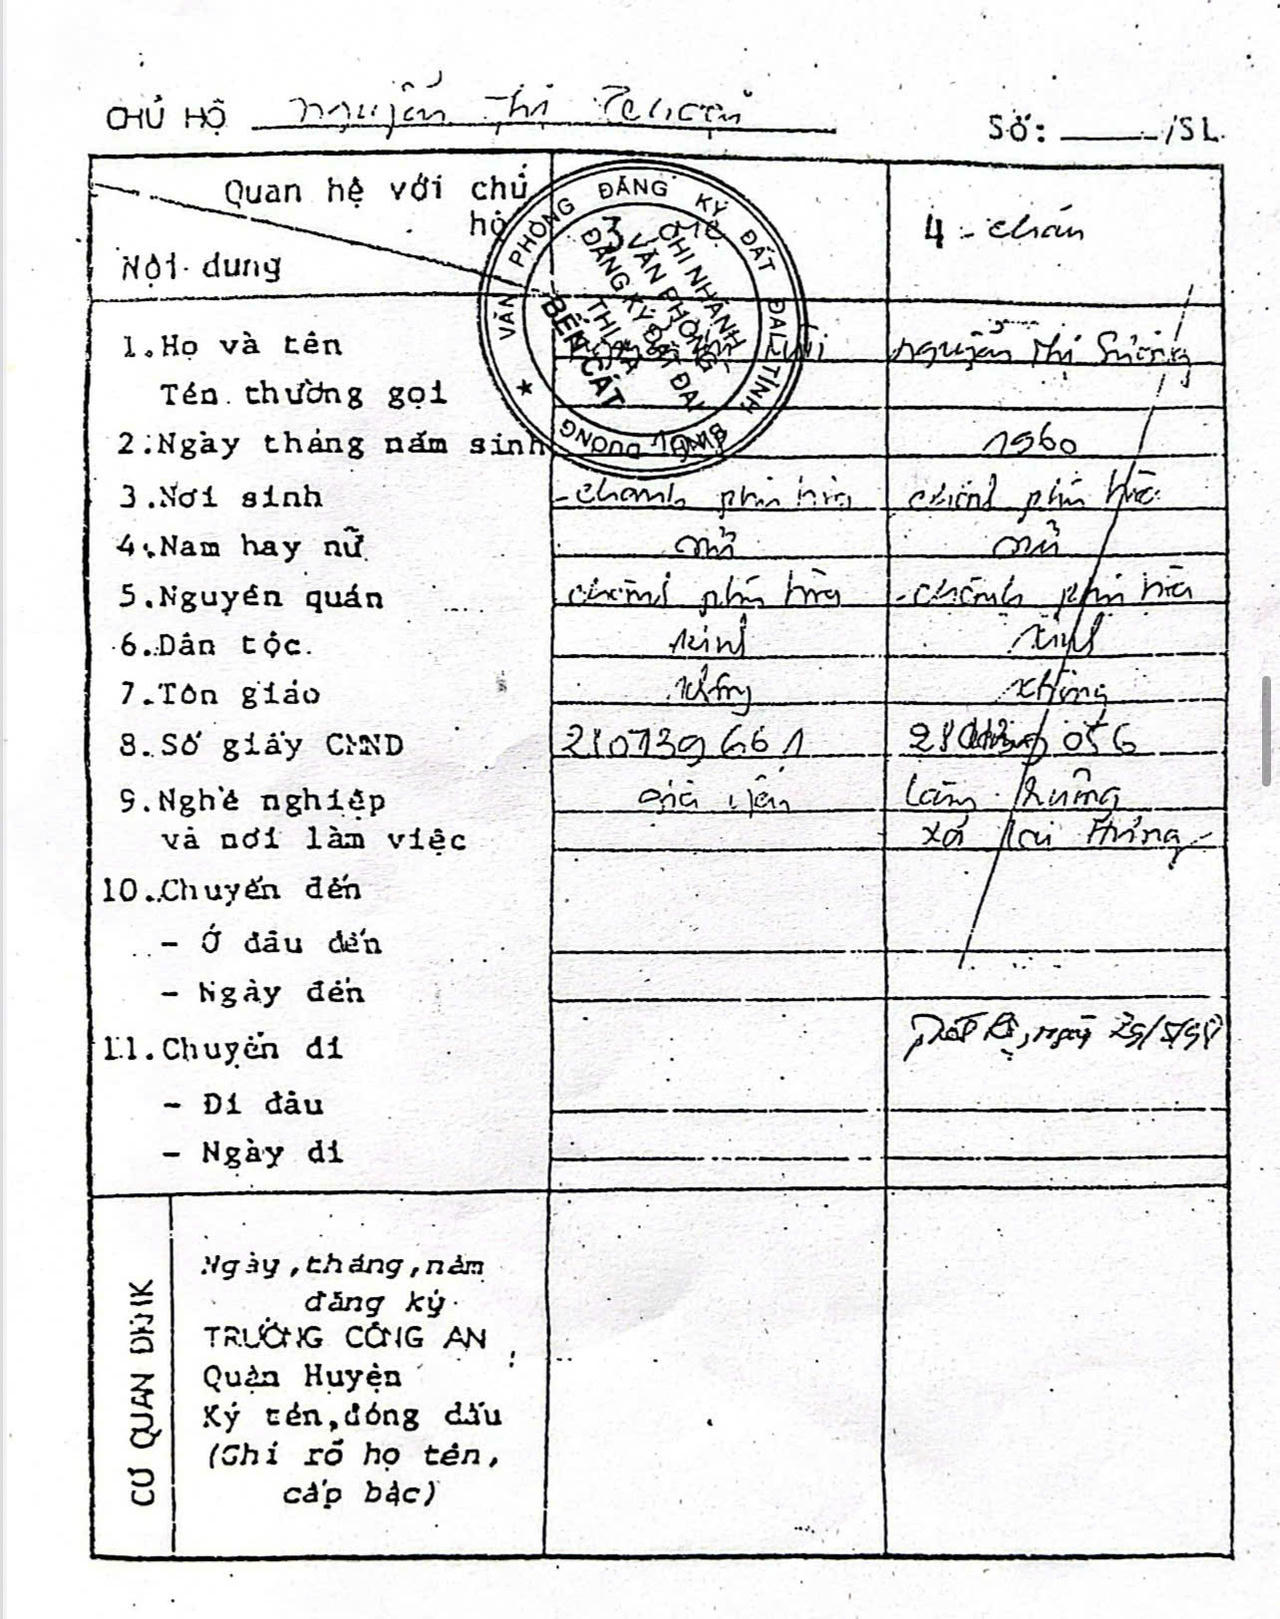 CHỦ HỘ Nguyễn Thị
SỐ: /SL
Quan hệ với chủ hộ
Nội dung
3
4 - cháu
VĂN PHÒNG ĐĂNG KÝ ĐẤT ĐAI TỈNH BÌNH DƯƠNG
CHI NHÁNH
VĂN PHÒNG
ĐĂNG KÝ ĐẤT ĐAI
THỊ XÃ
BẾN CÁT
1. Họ và tên nguyễn Thị Sương
Tên thường gọi
2. Ngày tháng năm sinh 1960
3. Nơi sinh chánh phú hòa chánh phú hòa
4. Nam hay nữ nữ nữ
5. Nguyên quán chánh phú hòa chánh phú hòa
6. Dân tộc. kinh kinh
7. Tôn giáo không không
8. Số giấy CMND 280739661 056
9. Nghề nghiệp già yếu
và nơi làm việc xã lai Hưng
10. Chuyển đến
- Ở đâu đến
- Ngày đến
11. Chuyển đi ngày 29/5/98
- Đi đâu
- Ngày đi
CƠ QUAN ĐKHK
Ngày, tháng, năm
đăng ký.
TRƯỞNG CÔNG AN
Quận Huyện
Ký tên, đóng dấu
(Ghi rõ họ tên,
cấp bậc)